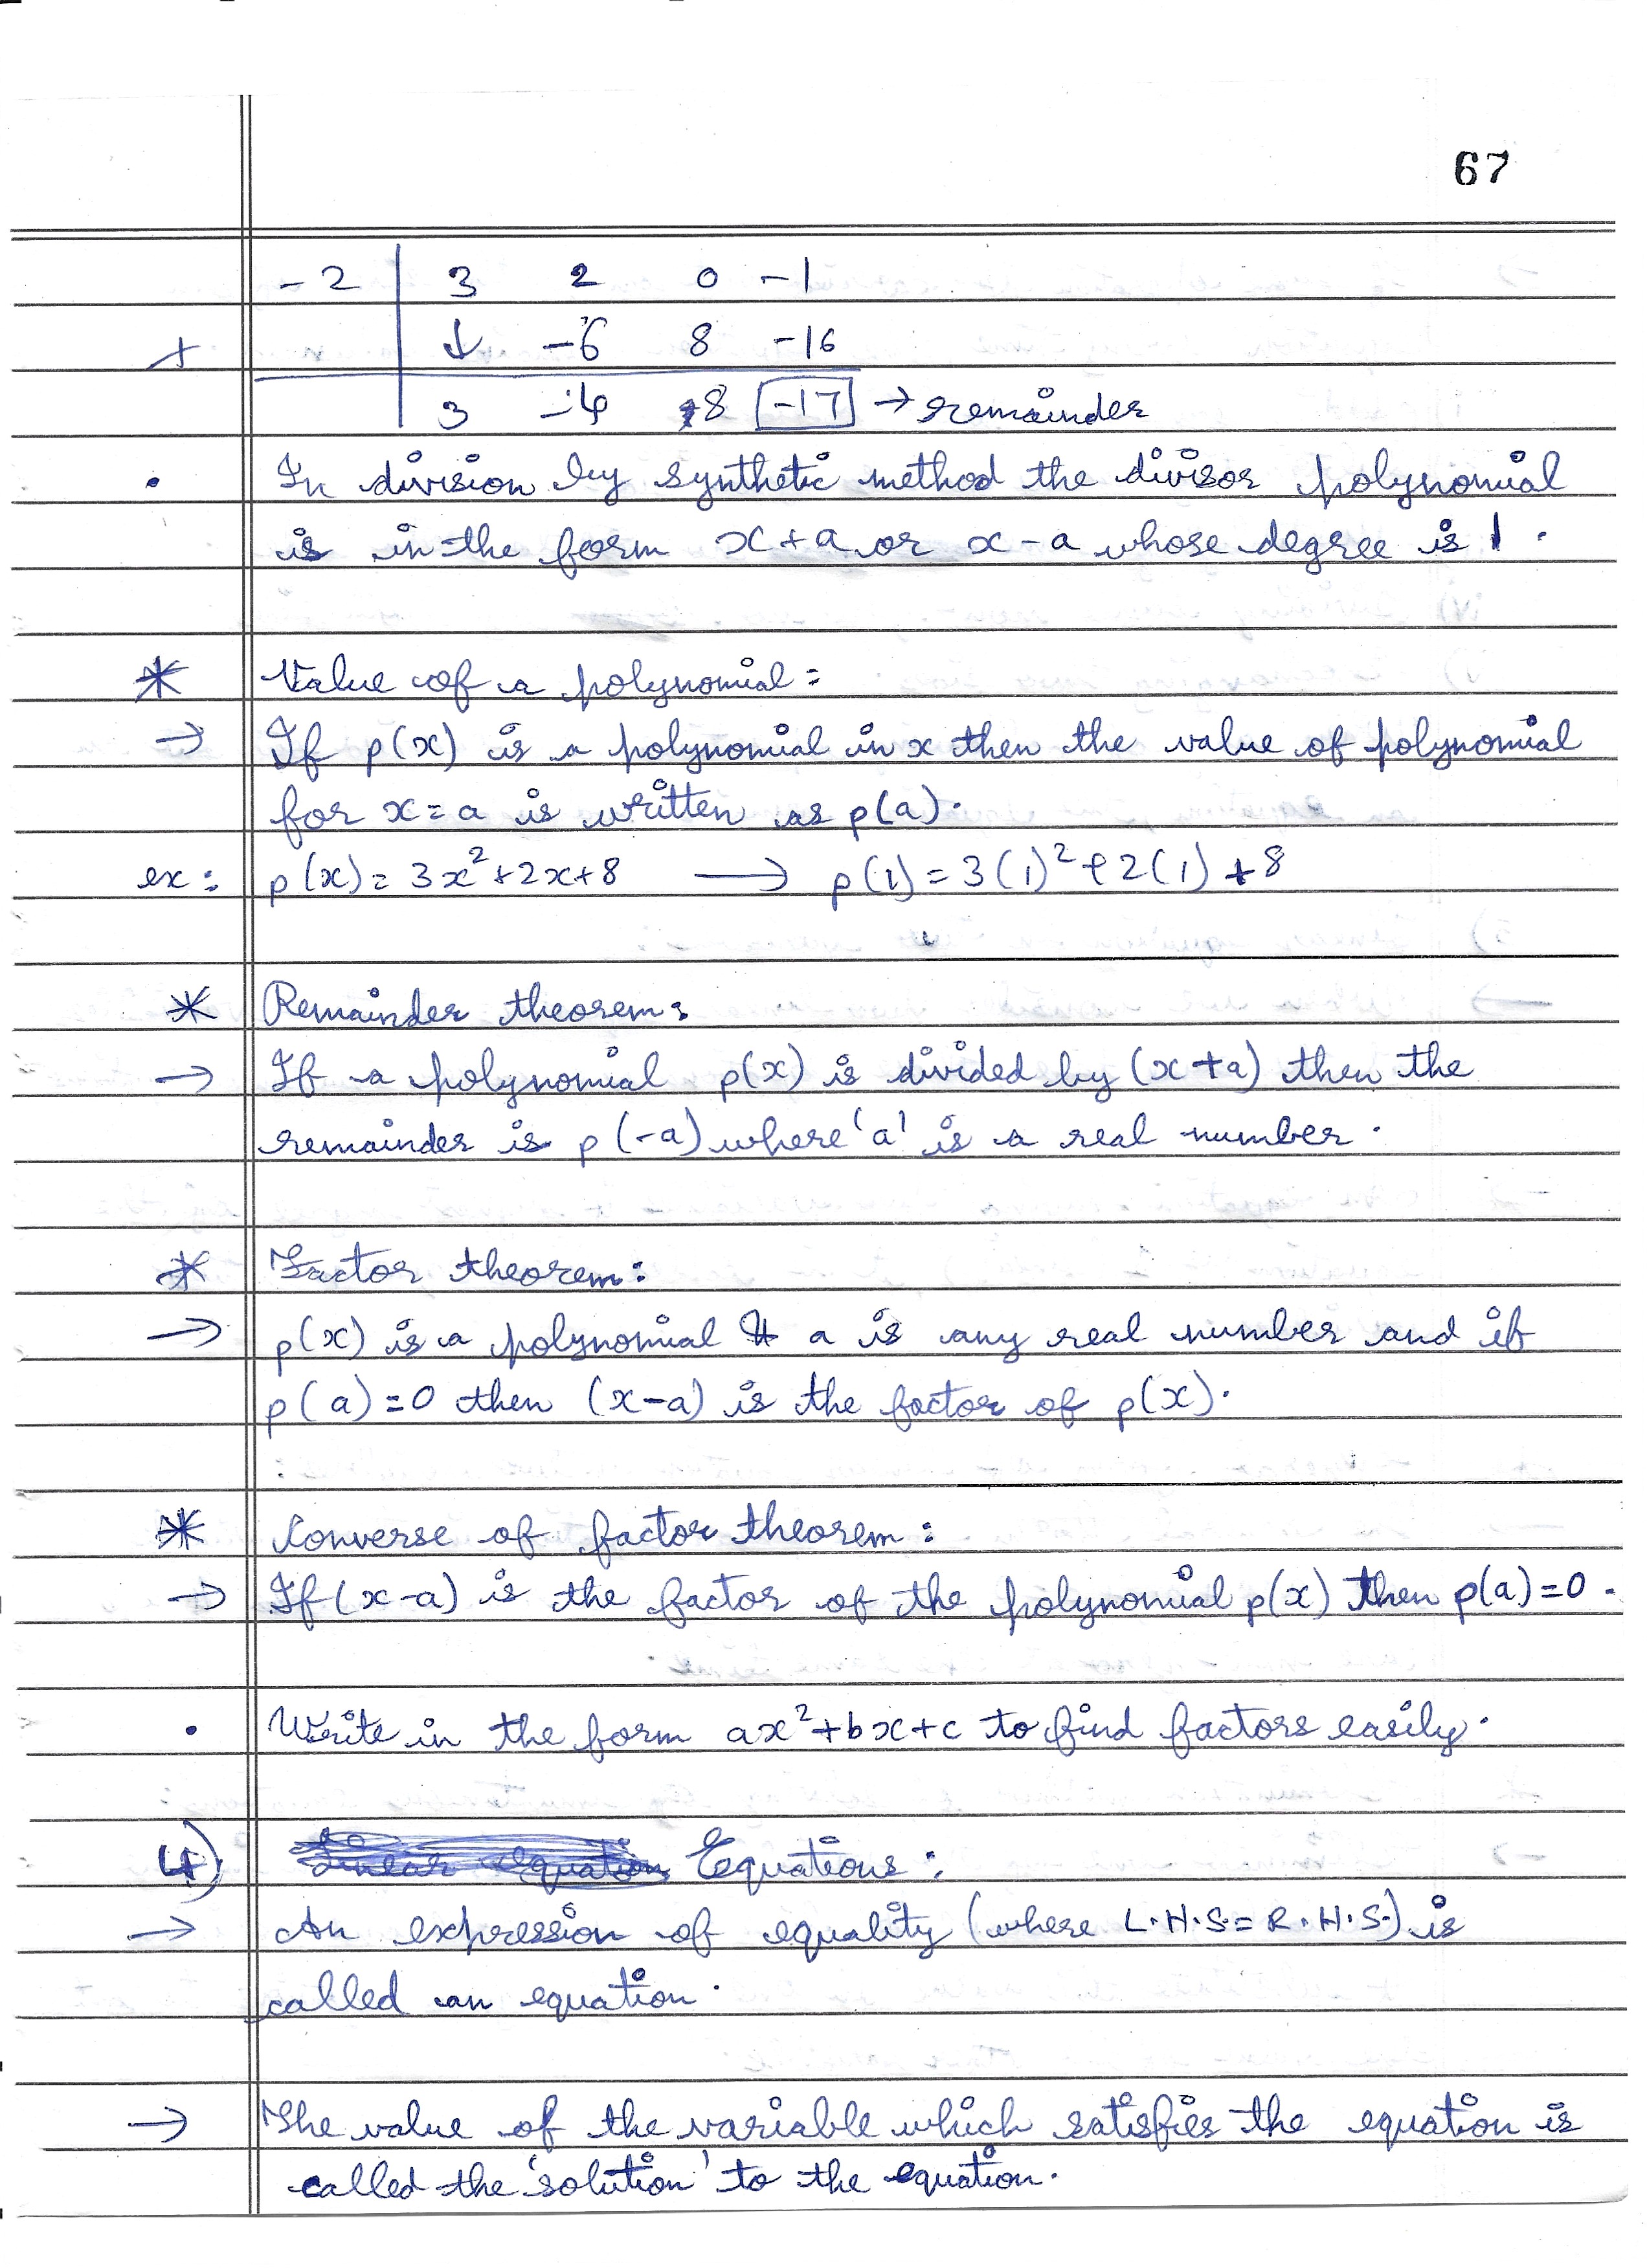 67
-2 | 3 2 0 -1
+ ↓ -6 8 -16
3 -4 8 -17 → remainder
• In division by synthetic method the divisor polynomial
is in the form x+a or x-a whose degree is 1.
* Value of a polynomial:
→ If p(x) is a polynomial in x then the value of polynomial
for x=a is written as p(a).
ex: p(x)= 3x²+2x+8 ⟶ p(1)=3(1)²+2(1)+8
* Remainder theorem:
→ If a polynomial p(x) is divided by (x+a) then the
remainder is p(-a) where 'a' is a real number.
* Factor theorem:
→ p(x) is a polynomial a is any real number and if
p(a)=0 then (x-a) is the factor of p(x).
* Converse of factor theorem:
→ If (x-a) is the factor of the polynomial p(x) then p(a)=0.
• Write in the form ax²+bx+c to find factors easily.
4) Linear equation Equations:
→ An expression of equality (where L.H.S.=R.H.S.) is
called an equation.
→ The value of the variable which satisfies the equation is
called the 'solution' to the equation.